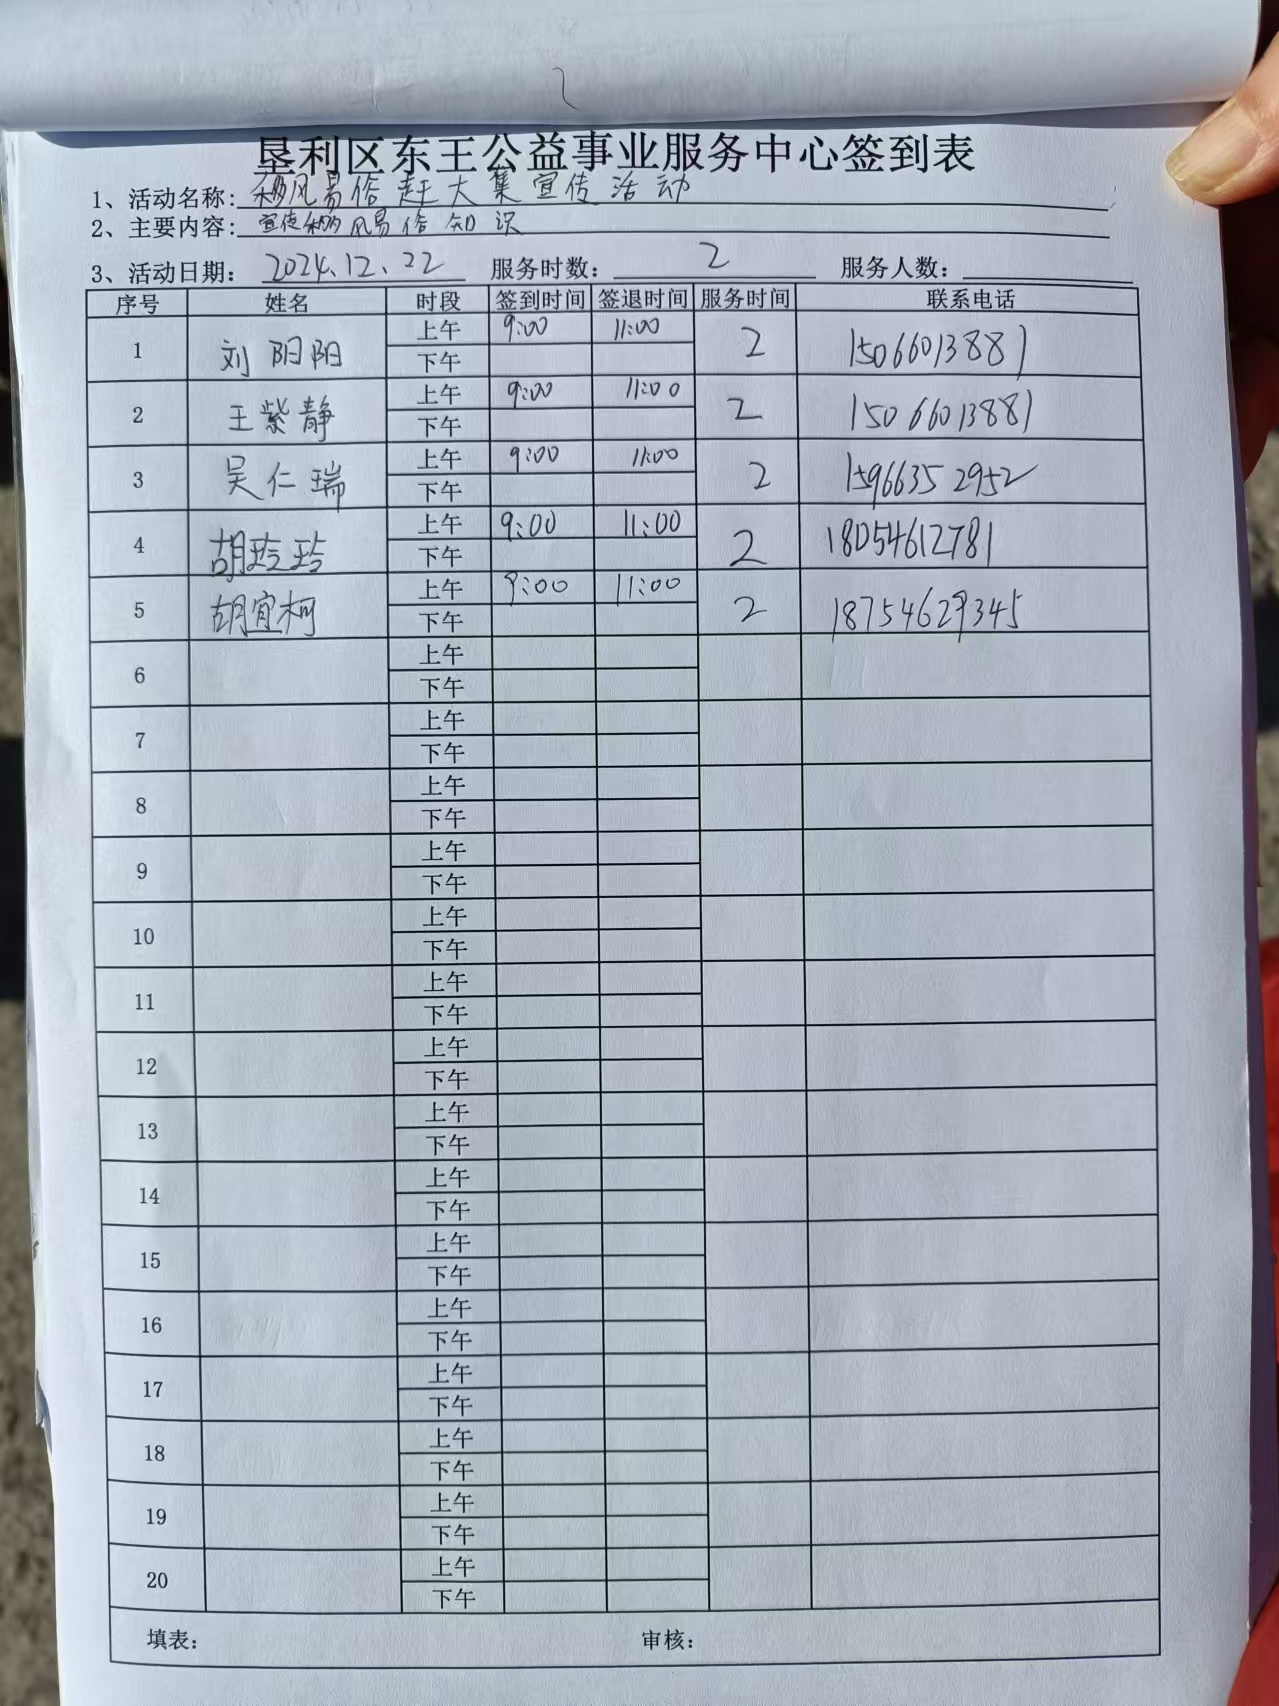 垦利区东王公益事业服务中心签到表
1、活动名称:移风易俗赶大集宣传活动
2、主要内容:宣传移风易俗知识
3、活动日期: 2024.12.22 服务时数: 2 服务人数:
序号 姓名 时段 签到时间 签退时间 服务时间 联系电话
1 刘阳阳 上午 9:00 11:00 2 15066013881
下午
2 王紫静 上午 9:00 11:00 2 15066013881
下午
3 吴仁瑞 上午 9:00 11:00 2 15966352952
下午
4 胡玲玲 上午 9:00 11:00 2 18054612781
下午
5 胡宜柯 上午 9:00 11:00 2 18754629345
下午
6 上午
下午
7 上午
下午
8 上午
下午
9 上午
下午
10 上午
下午
11 上午
下午
12 上午
下午
13 上午
下午
14 上午
下午
15 上午
下午
16 上午
下午
17 上午
下午
18 上午
下午
19 上午
下午
20 上午
下午
填表: 审核: